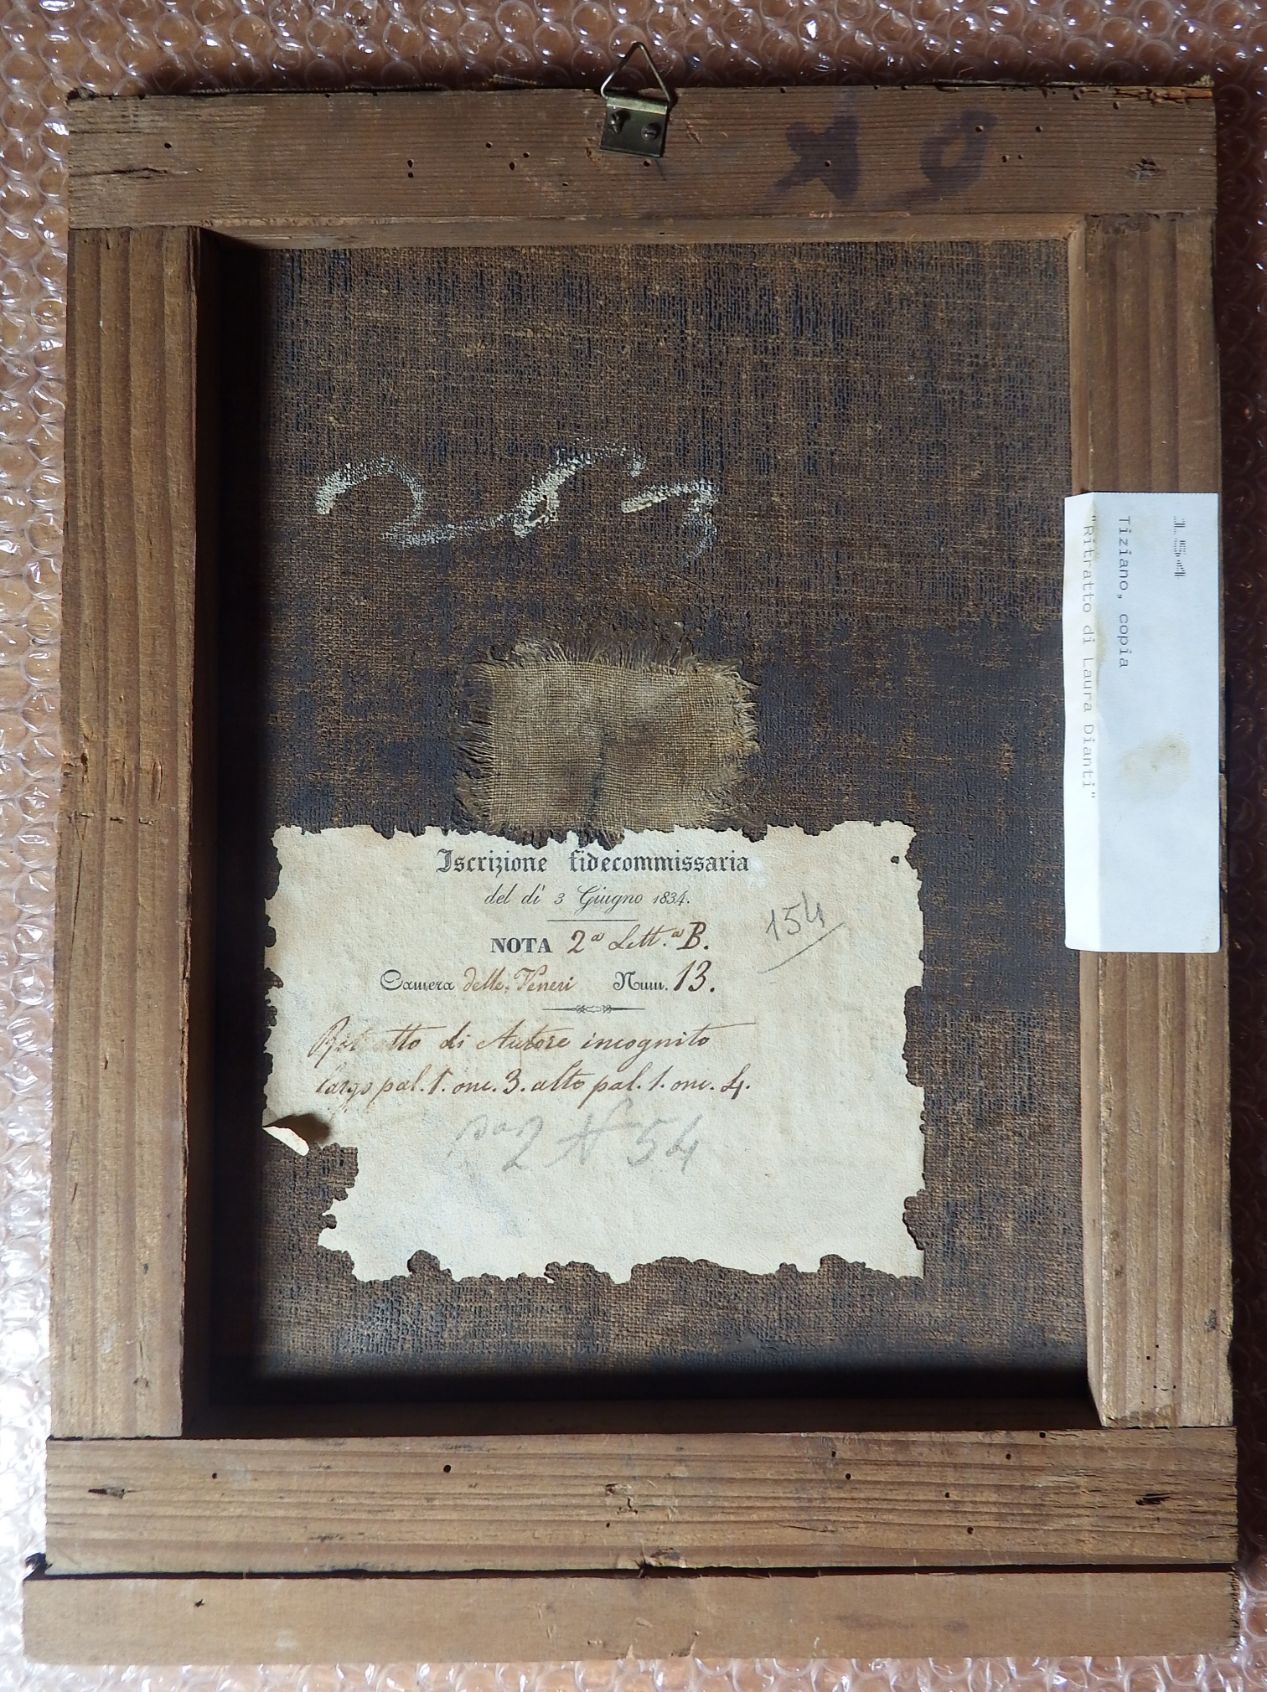 267
Iscrizione fidecommissaria
del dì 3 Giugno 1834.
NOTA 2ª Lett.ª B.
154
Camera delle Veneri Num. 13.
Ritratto di Autore incognito
largo pal. 1. onc. 3. alto pal. 1. onc. 4.
2 N 54
154
Tiziano, copia
"Ritratto di Laura Dianti"